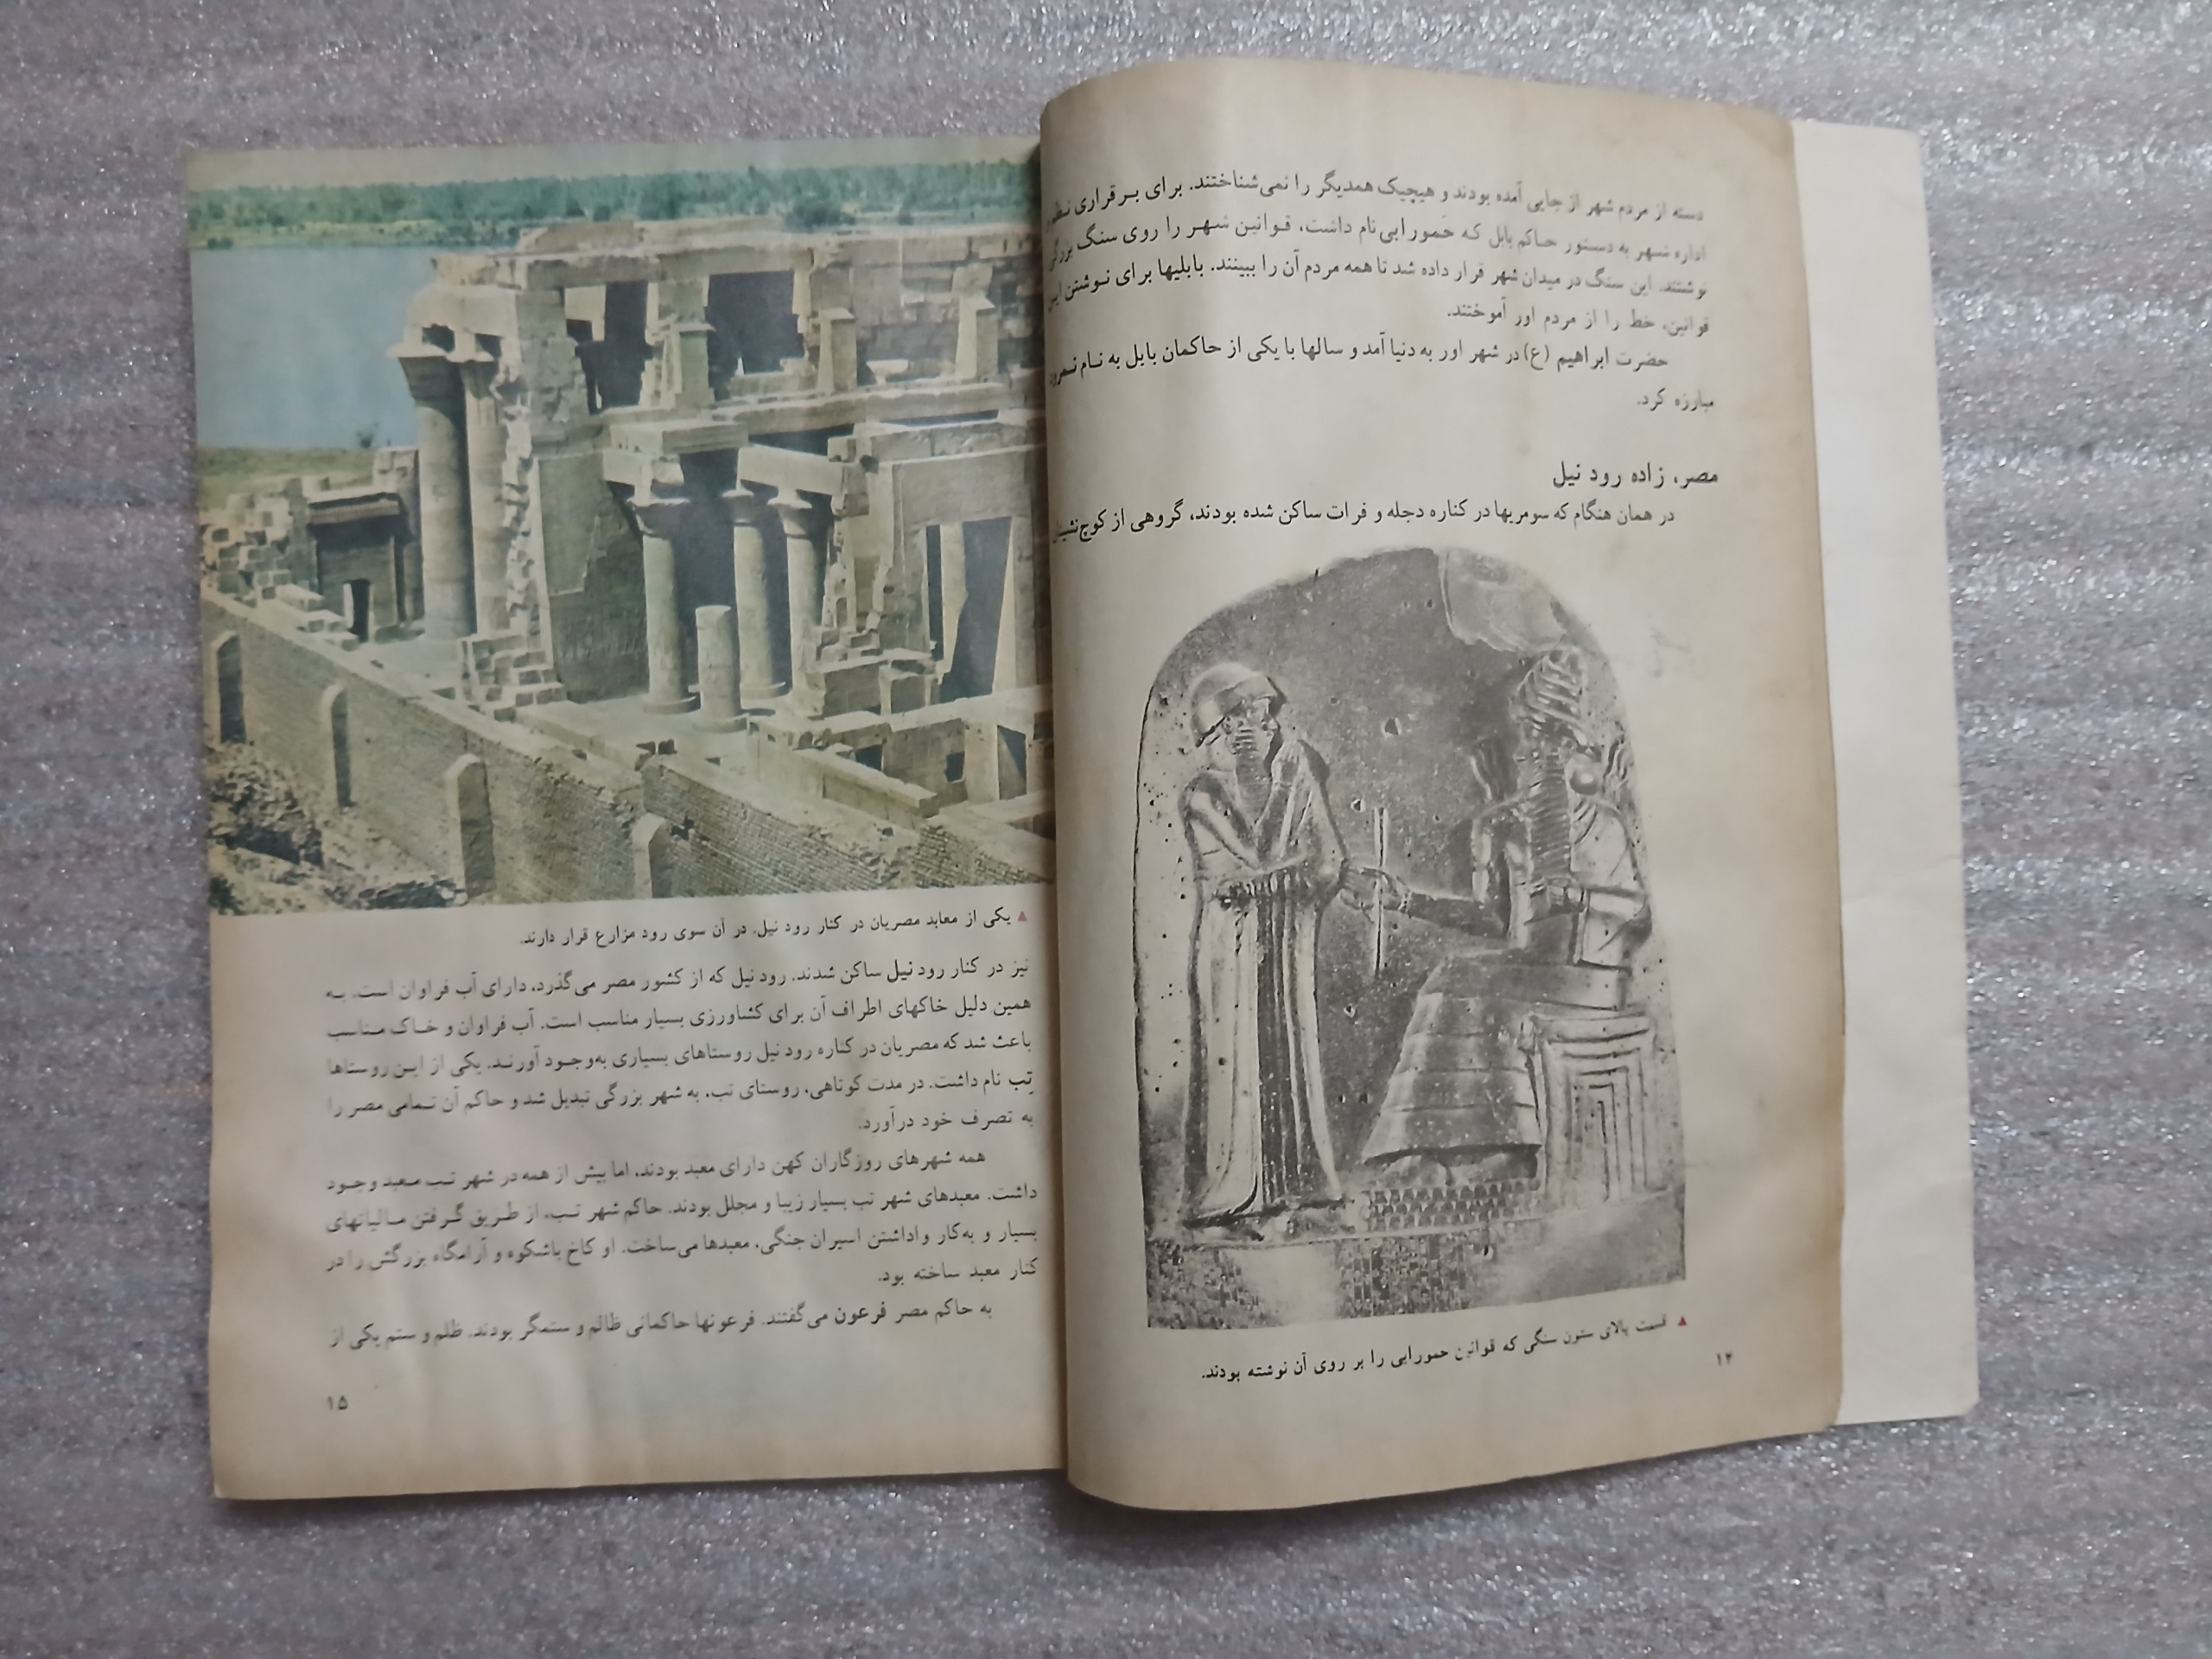 دسته از مردم شهر از جایی آمده بودند و هیچیک همدیگر را نمی‌شناختند. برای برقراری نظم
اداره شهر به دستور حاکم بابل که حَمورابی‌نام داشت، قوانین شهر را روی سنگ بزرگی
نوشتند. این سنگ در میدان شهر قرار داده شد تا همه مردم آن را ببینند. بابلیها برای نوشتن این
قوانین، خط را از مردم اور آموختند.
حضرت ابراهیم (ع) در شهر اور به دنیا آمد و سالها با یکی از حاکمان بابل به نام نمرود
مبارزه کرد.
مصر، زاده رود نیل
در همان هنگام که سومریها در کناره دجله و فرات ساکن شده بودند، گروهی از کوچ‌نشینان
▲ قسمت بالای ستون سنگی که قوانین حمورابی را بر روی آن نوشته بودند.
۱۴
▲ یکی از معابد مصریان در کنار رود نیل. در آن سوی رود مزارع قرار دارند.
نیز در کنار رود نیل ساکن شدند. رود نیل که از کشور مصر می‌گذرد، دارای آب فراوان است. به
همین دلیل خاکهای اطراف آن برای کشاورزی بسیار مناسب است. آب فراوان و خاک مناسب
باعث شد که مصریان در کناره رود نیل روستاهای بسیاری به‌وجود آورند. یکی از این روستاها
تِب نام داشت. در مدت کوتاهی، روستای تب، به شهر بزرگی تبدیل شد و حاکم آن تمامی مصر را
به تصرف خود درآورد.
همه شهرهای روزگاران کهن دارای معبد بودند، اما بیش از همه در شهر تب معبد وجود
داشت. معبدهای شهر تب بسیار زیبا و مجلل بودند. حاکم شهر تب، از طریق گرفتن مالیاتهای
بسیار و به‌کار واداشتن اسیران جنگی، معبدها می‌ساخت. او کاخ باشکوه و آرامگاه بزرگش را در
کنار معبد ساخته بود.
به حاکم مصر فرعون می‌گفتند. فرعونها حاکمانی ظالم و ستمگر بودند. ظلم و ستم یکی از
۱۵